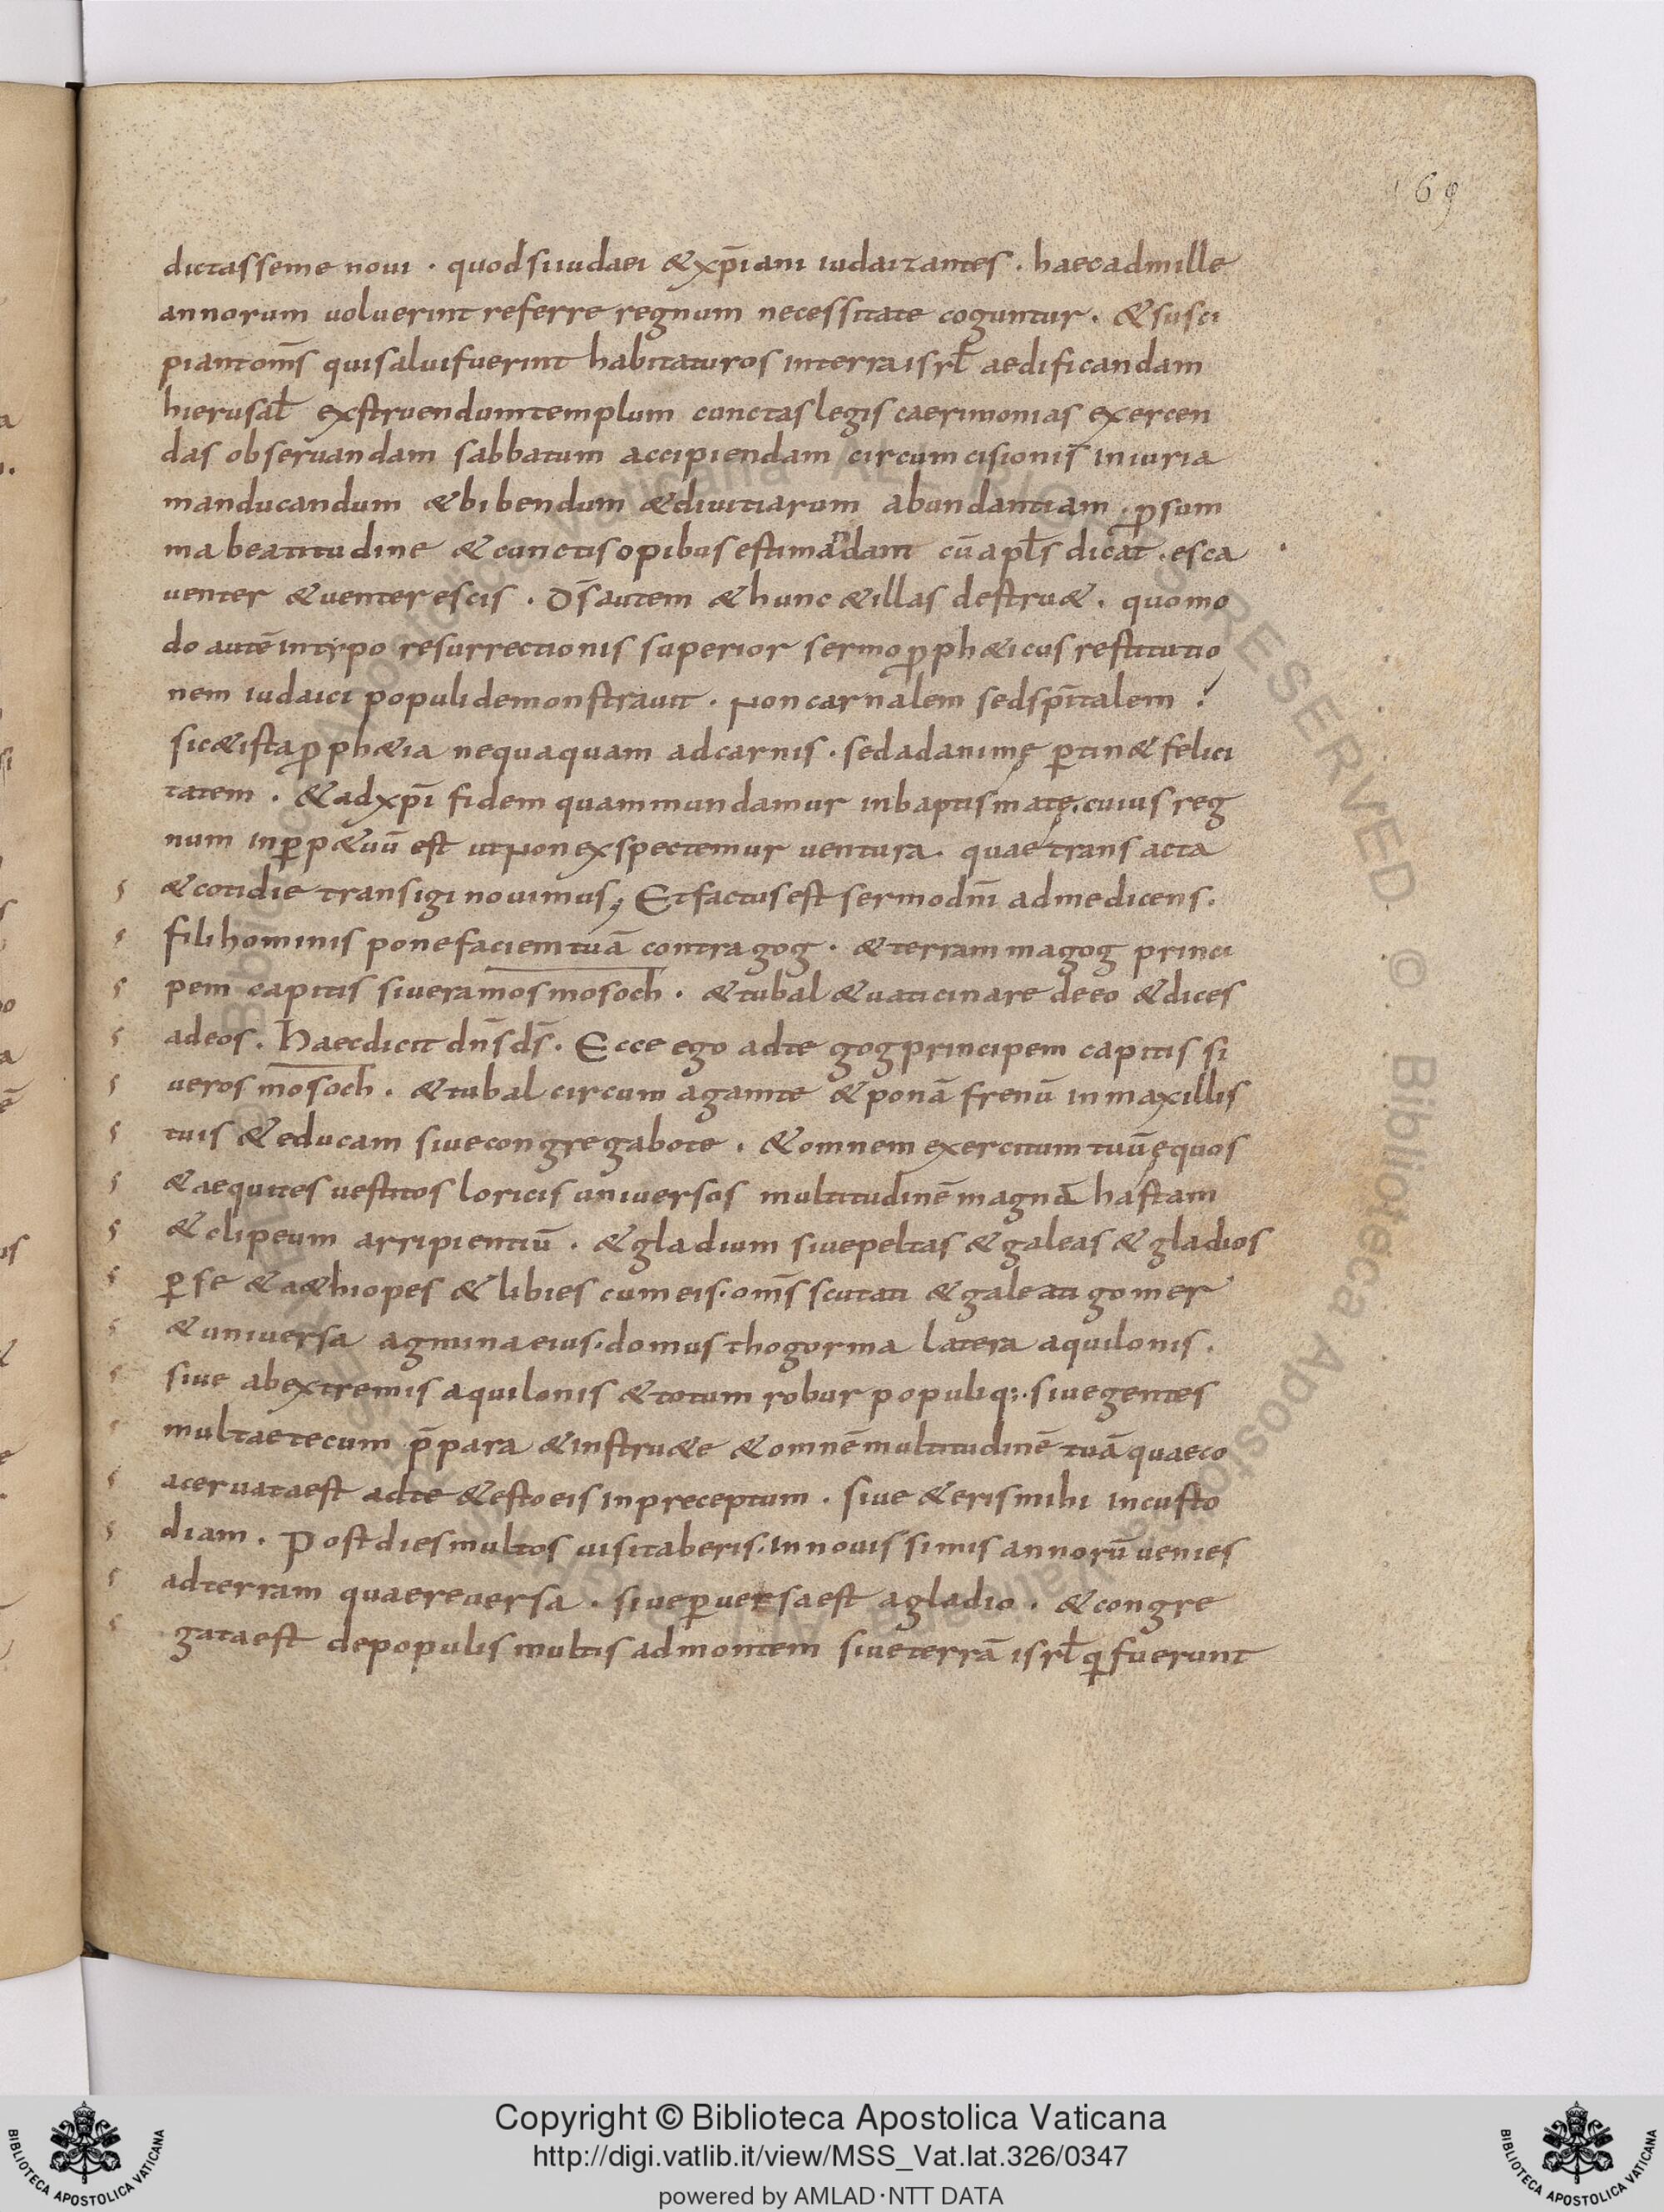 169
dictasseme noui . quodsiiudaei &xp̄iani iudaizantes . haecadmille
annorum uoluerint referre regnum necessitate coguntur . &susci
piantom̄s quisaluifuerint habitaturos interraisrl̄ aedificandam
hierusal̄ exstruendumtemplum cunctas legis caerimonias exercen
das obseruandam sabbatum accipiendam circumcisionis iniuria
manducandum &bibendum &diuitiarum abundantiam . ꝓsum
ma beatitudine &cunctisopibus estimandam cū apl̄s dicat . esca
uenter &uenter escis . d̄s autem &hunc &illas destru& . quomo
do autē intypo resurrectionis superior sermo ꝓph&icus restitutio
nem iudaici populi demonstrauit . Non carnalem sed sp̄italem ;
sic&ista ꝓph&ia nequaquam adcarnis . sed adanimę ꝑtin& felici
tatem . &adxp̄i fidem quam mundamur inbaptismate . cuius reg
num inꝑp&uū est ut Non exspectemur uentura . quae transacta
&cotidie transigi nouimus ; Et factus est sermo dn̄i ad me dicens .
fili hominis pone faciem tuā contra gog . &terram magog princi
pem capitis siueramosmosoch . &tubal &uaticinare deeo &dices
adeos . Haecdicit dn̄s d̄s . Ecce ego adte gog principem capitis si
ueros mosoch . &tubal circum agamte &ponā frenū in maxillis
tuis &educam siuecongregabote . &omnem exercitum tuū ęquos
&aequites uestitos loricis uniuersos multitudinē magnā hastam
&clipeum arripientiū . &gladium siuepeltas &galeas &gladios
ꝑse &a&hiopes &libies cum eis . om̄s scutati &galeati gomer
&uniuersa agmina eius . domus thogorma latera aquilonis .
siue abextremis aquilonis &totum robur populiq; . siuegentes
multaetecum p̄para &instru&e &omnē multitudinē tuā quaeco
aceruataest adte &esto eis inpreceptum . siue &eris mihi incusto
diam . Post dies multos uisitaberis . In nouissimis annorū uenies
adterram quaereuersa . siueꝑuersaest agladio . &congre
gataest depopulis multis admontem siueterrā isrl̄ qi fuerunt
Copyright © Biblioteca Apostolica Vaticana
http://digi.vatlib.it/view/MSS_Vat.lat.326/0347
powered by AMLAD·NTT DATA